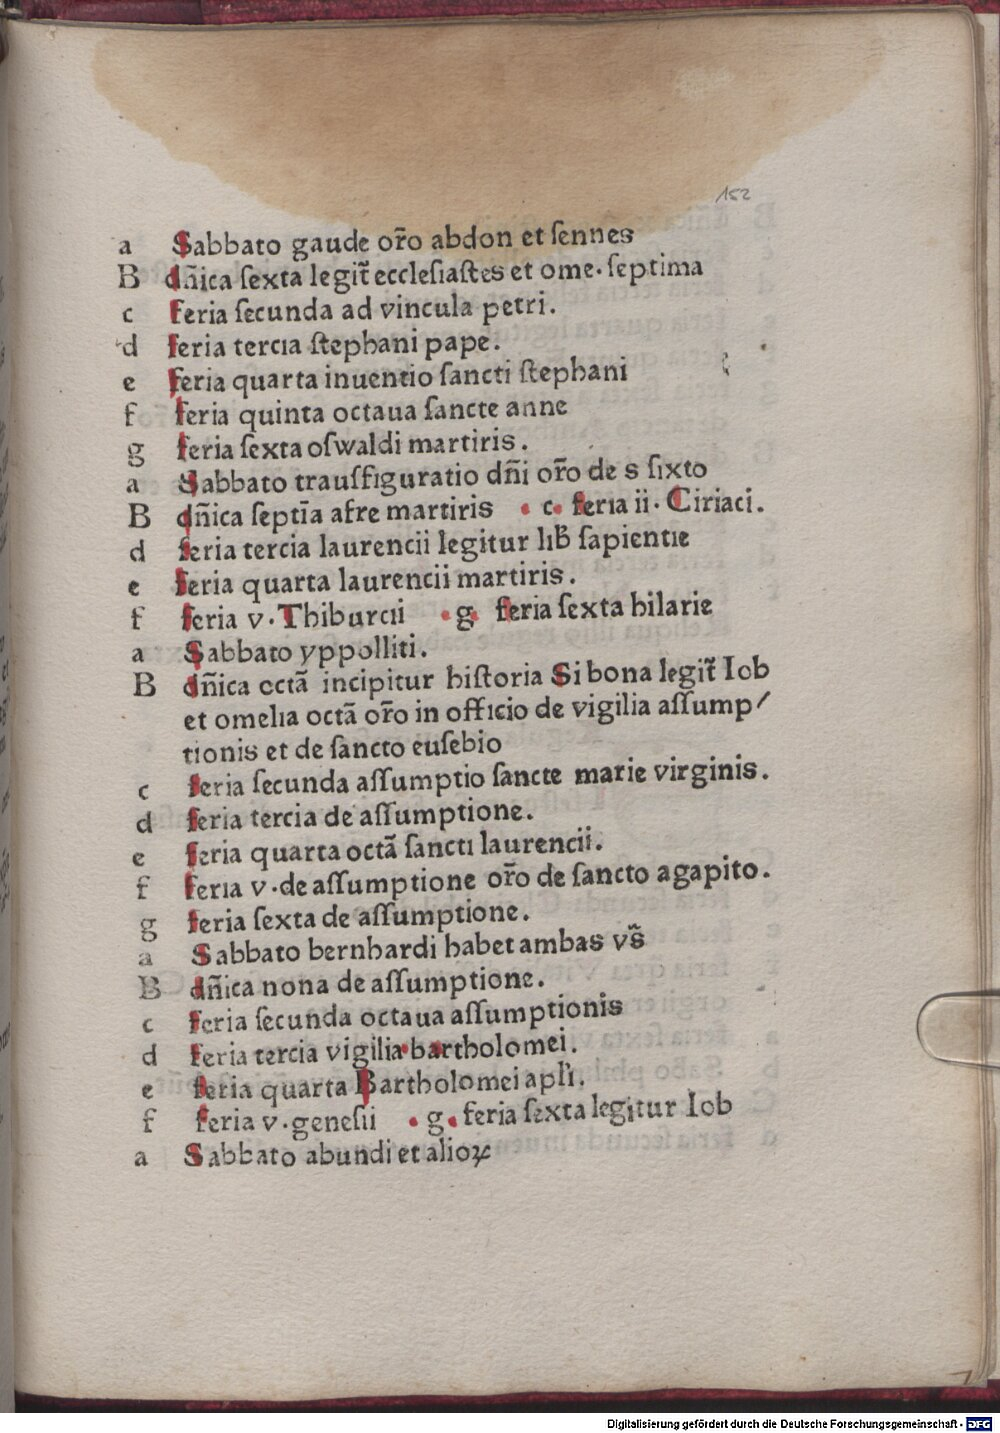 152
a Sabbato gaude or̃o abdon et ſennes
B dn̄ica ſexta legit̃ eccleſiaſtes et ome· ſeptima
c feria ſecunda ad vincula petri.
d feria tercia ſtephani pape.
e feria quarta inuentio ſancti ſtephani
f feria quinta octaua ſancte anne
g feria ſexta oſwaldi martiris.
a Sabbato trauſfiguratio dn̄i or̃o de s ſixto
B dn̄ica ſeptīa afre martiris · c· feria ii· Ciriaci.
d feria tercia laurencii legitur lib̃ ſapientie
e feria quarta laurencii martiris.
f feria v· Thiburcii ·g· feria ſexta hilarie
a Sabbato yppolliti.
B dn̄ica octā incipitur hiſtoria Si bona legit̃ Iob
et omelia octā or̃o in officio de vigilia aſſump/
tionis et de ſancto euſebio
c feria ſecunda aſſumptio ſancte marie virginis.
d feria tercia de aſſumptione.
e feria quarta octā ſancti laurencii.
f feria v·de aſſumptione or̃o de ſancto agapito.
g feria ſexta de aſſumptione.
a Sabbato bernhardi habet ambas vs̃
B dn̄ica nona de aſſumptione.
c feria ſecunda octaua aſſumptionis
d feria tercia vigilia bartholomei.
e feria quarta Bartholomei apl'i.
f feria v·geneſii ·g· feria ſexta legitur Iob
a Sabbato abundi et alioꝝ
Digitalisierung gefördert durch die Deutsche Forschungsgemeinschaft - DFG